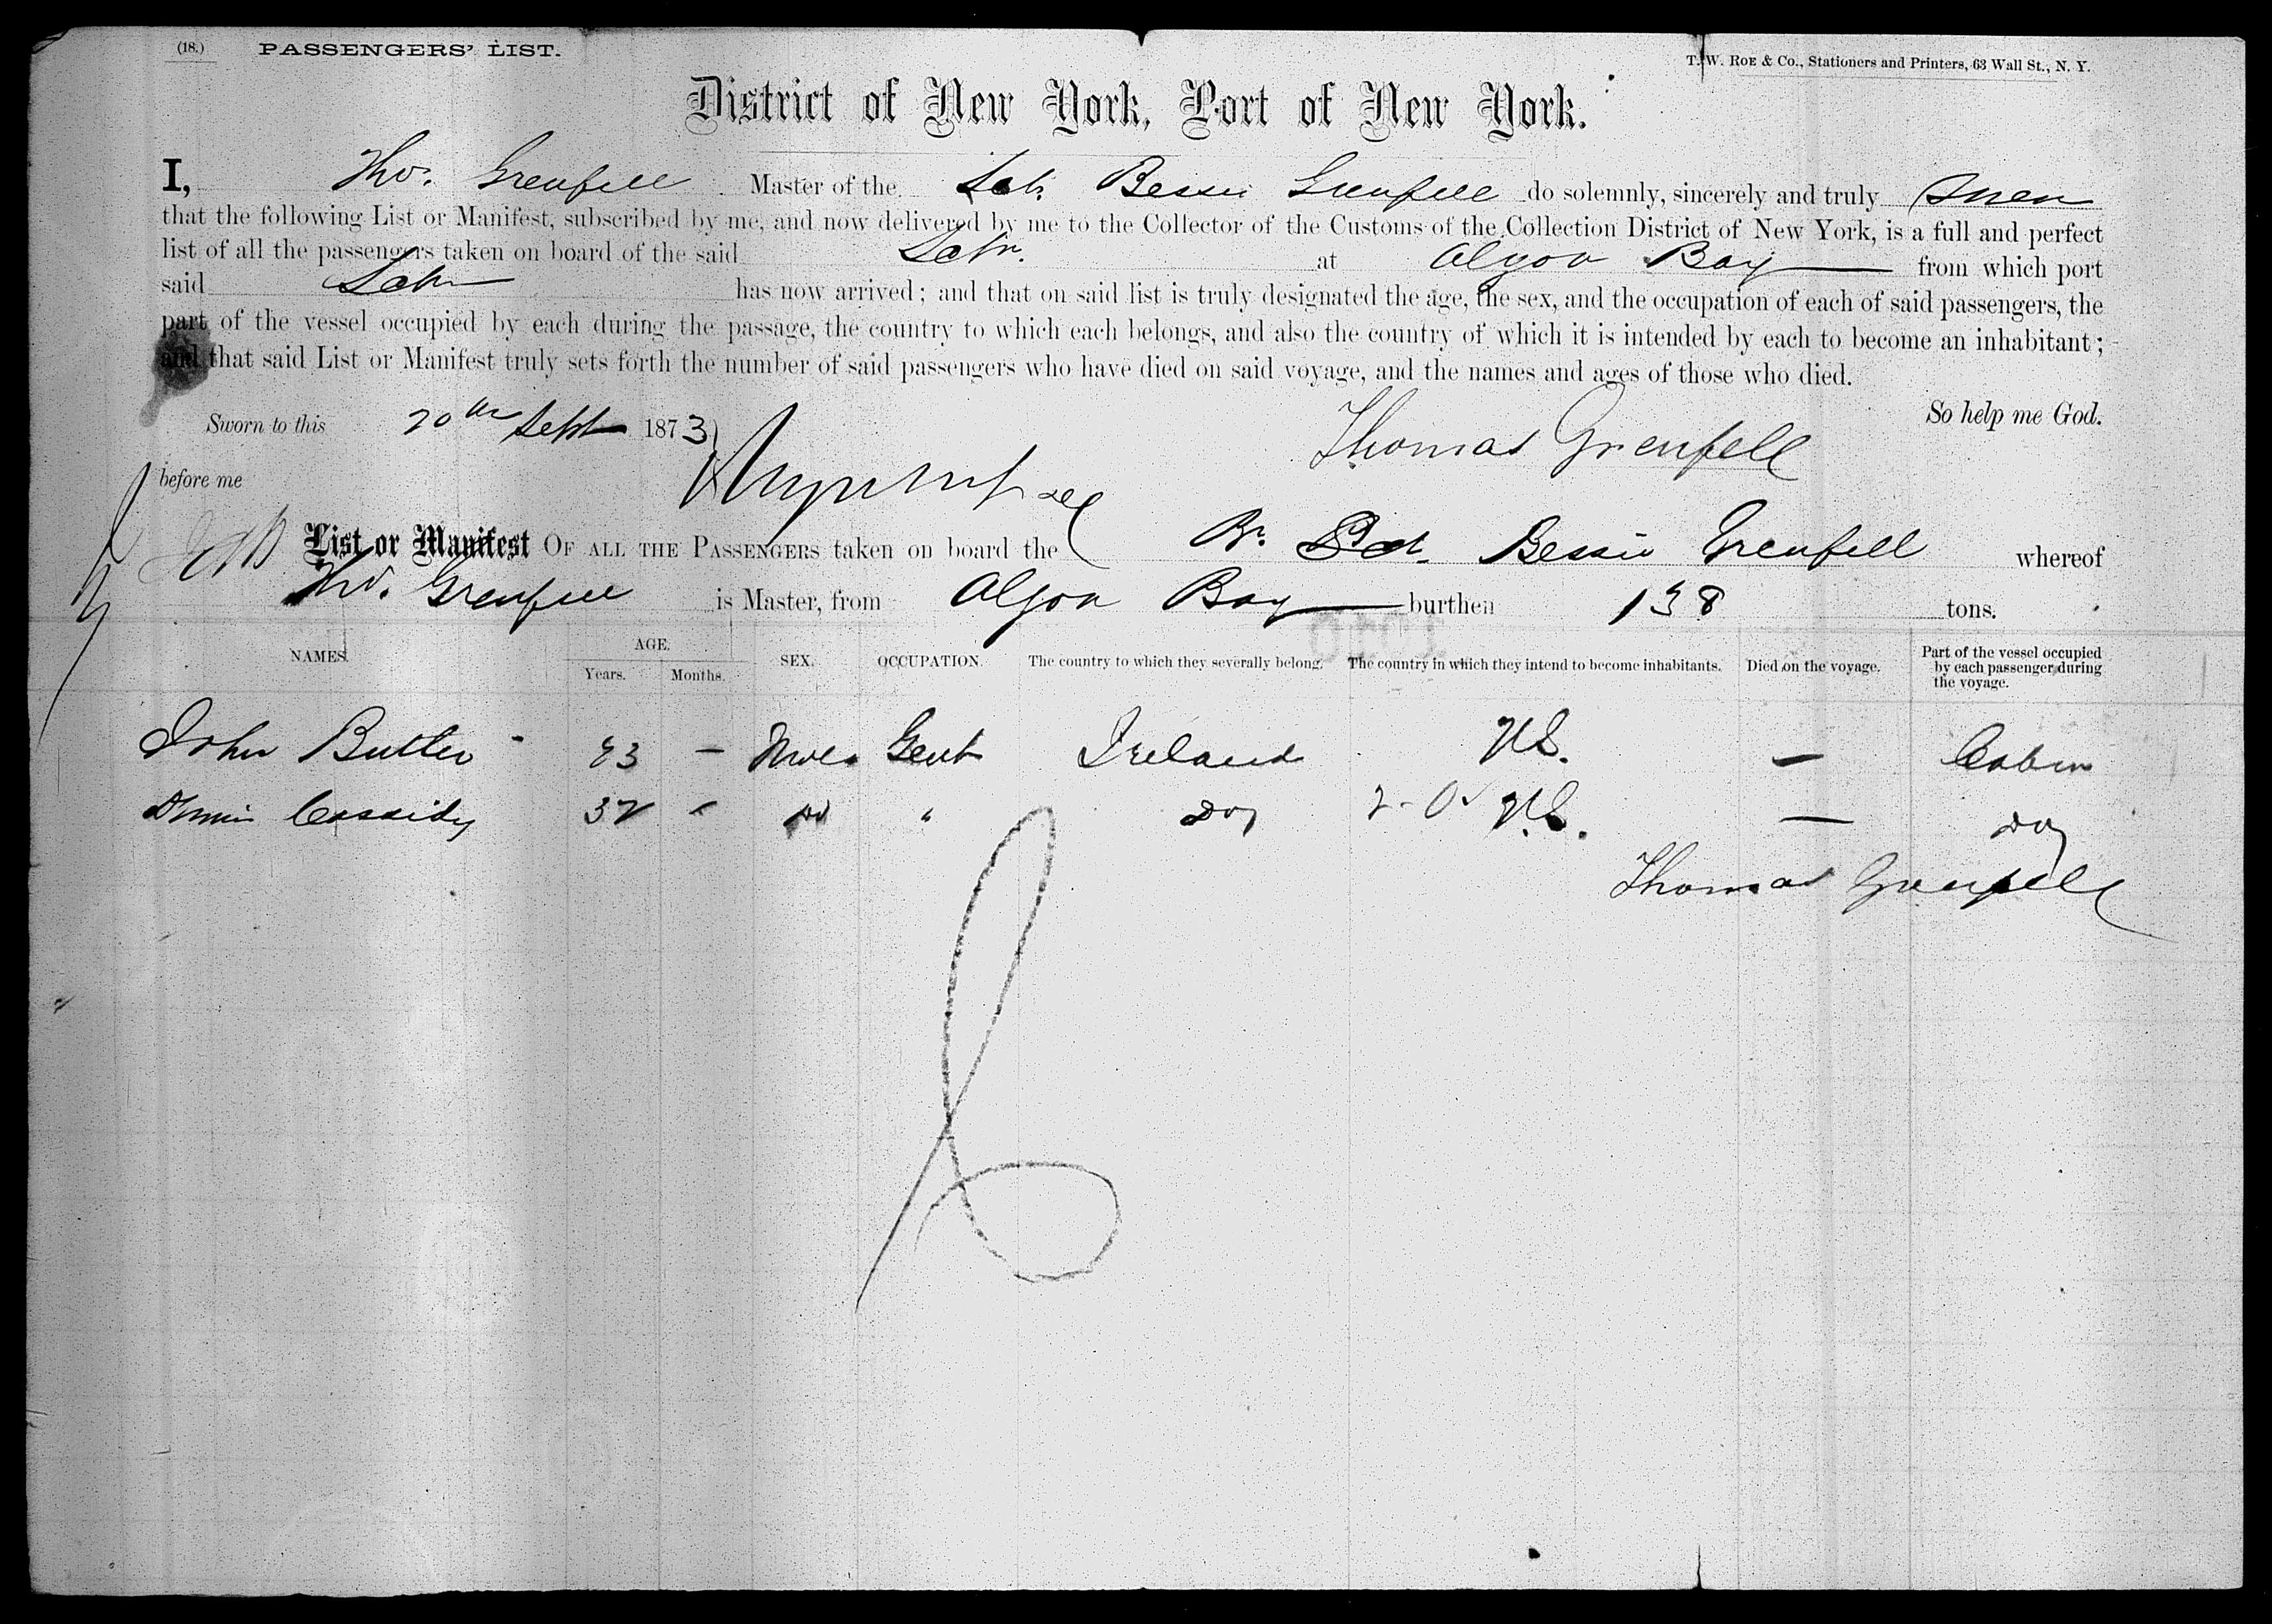 (18.) PASSENGERS' LIST.
T. W. ROE & Co., Stationers and Printers, 63 Wall St., N. Y.
District of New York, Port of New York.
I, Tho. Grenfell Master of the Sch. Bessie Grenfell do solemnly, sincerely and truly swear
that the following List or Manifest, subscribed by me, and now delivered by me to the Collector of the Customs of the Collection District of New York, is a full and perfect
list of all the passengers taken on board of the said Schr. at Algoa Bay from which port
said Schr has now arrived; and that on said list is truly designated the age, the sex, and the occupation of each of said passengers, the
part of the vessel occupied by each during the passage, the country to which each belongs, and also the country of which it is intended by each to become an inhabitant;
and that said List or Manifest truly sets forth the number of said passengers who have died on said voyage, and the names and ages of those who died.
So help me God.
Sworn to this 20th Sept 1873
Thomas Grenfell
before me
List or Manifest OF ALL THE PASSENGERS taken on board the Br. Sch. Bessie Grenfell whereof
Tho. Grenfell is Master, from Algoa Bay burthen 138 tons.
NAMES. AGE. Years. Months. SEX. OCCUPATION. The country to which they severally belong. The country in which they intend to become inhabitants. Died on the voyage. Part of the vessel occupied by each passenger during the voyage.
John Butler - Male Gent Ireland U.S. - Cabin
Dennis Cassidy 32 " Do " Do U.S. - Do
Thomas Grenfell